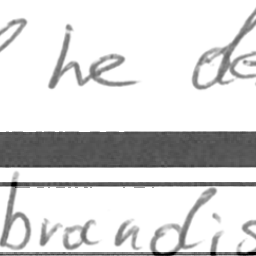 he de
brandis